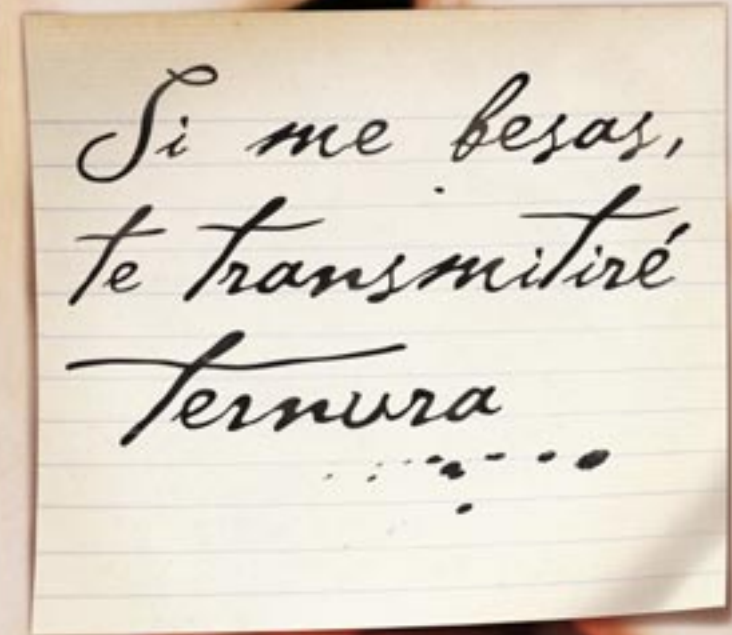 Si me besas,
te transmitiré
ternura